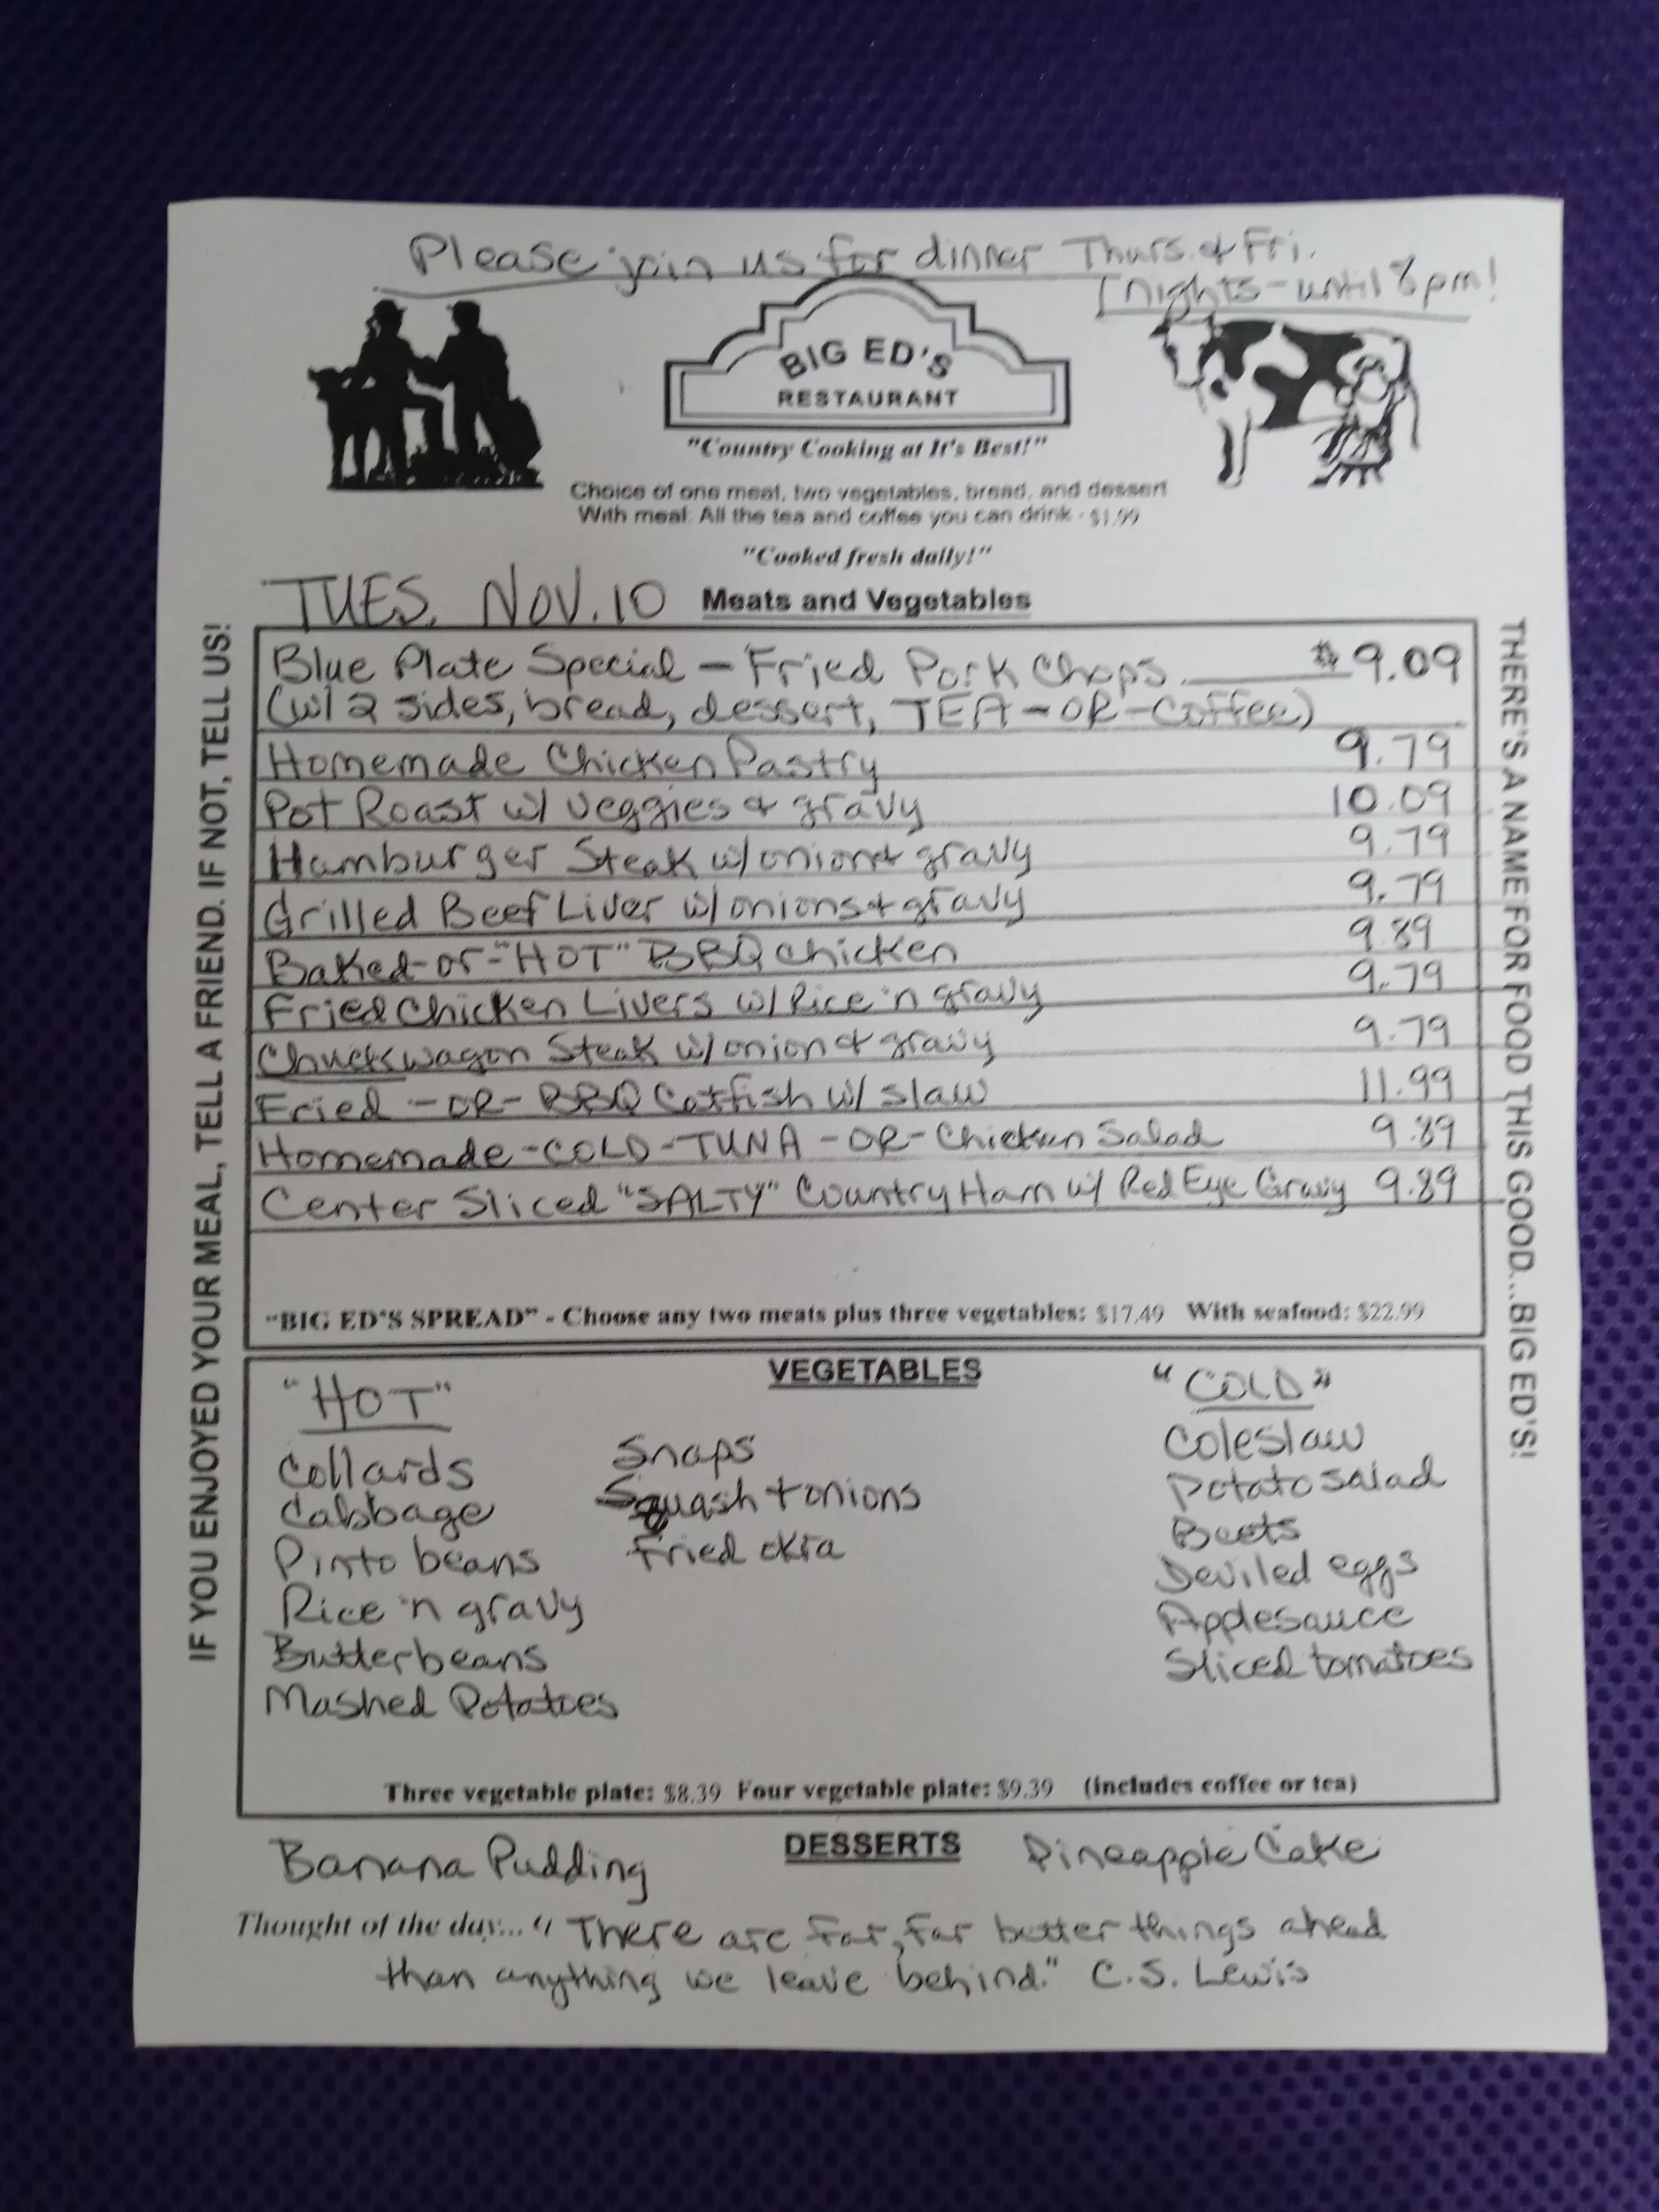 Please join us for dinner Thurs. & Fri.
nights - until 8 pm!
BIG ED'S
RESTAURANT
"Country Cooking at It's Best!"
Choice of one meat, two vegetables, bread, and dessert
With meal: All the tea and coffee you can drink - $1.99
"Cooked fresh daily!"
TUES. NOV. 10 Meats and Vegetables
Blue Plate Special - Fried Pork Chops $9.09
(w/ 2 sides, bread, dessert, TEA - OR - Coffee)
Homemade Chicken Pastry 9.79
Pot Roast w/ veggies & gravy 10.09
Hamburger Steak w/ onion & gravy 9.79
Grilled Beef Liver w/ onions & gravy 9.79
Baked-or-"HOT" BBQ chicken 9.89
Fried Chicken Livers w/ Rice 'n gravy 9.79
Chuckwagon Steak w/ onion & gravy 9.79
Fried -OR- BBQ Catfish w/ slaw 11.99
Homemade-COLD-TUNA-OR-Chicken Salad 9.89
Center Sliced "SALTY" Country Ham w/ Red Eye Gravy 9.89
"BIG ED'S SPREAD" - Choose any two meats plus three vegetables: $17.49 With seafood: $22.99
VEGETABLES
"HOT"
Collards
Cabbage
Pinto beans
Rice 'n gravy
Butterbeans
Mashed Potatoes
Snaps
Squash + onions
Fried okra
"COLD"
Coleslaw
Potato salad
Beets
Deviled eggs
Applesauce
Sliced tomatoes
Three vegetable plate: $8.39 Four vegetable plate: $9.39 (includes coffee or tea)
DESSERTS
Banana Pudding
Pineapple Cake
Thought of the day... "There are far, far better things ahead
than anything we leave behind." C.S. Lewis
IF YOU ENJOYED YOUR MEAL, TELL A FRIEND. IF NOT, TELL US!
THERE'S A NAME FOR FOOD THIS GOOD...BIG ED'S!